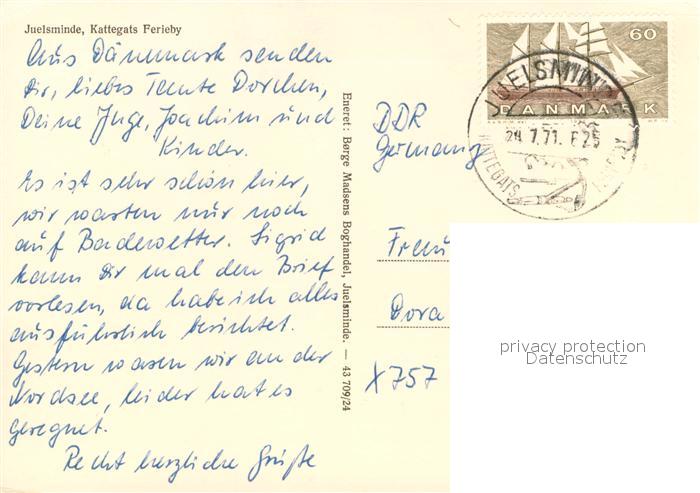 Juelsminde, Kattegats Ferieby
Aus Dänemark senden
Dir, liebes Tante Dorchen,
Deine Inge, Joachim und
Kinder.
Es ist sehr schön hier,
wir warten nur noch
auf Badewetter. Sigrid
kann Dir mal den Brief
vorlesen, da habe ich alles
ausführlich berichtet.
Gestern waren wir an der
Nordsee, leider hat es
geregnet.
Recht herzliche Grüße
Eneret: Børge Madsens Boghandel, Juelsminde. — 43 709/24
60
DANMARK
JUELSMINDE
24.7.71. 6.25
KATTEGATS
DDR
Germany
Frau
Dora
X757
privacy protection
Datenschutz